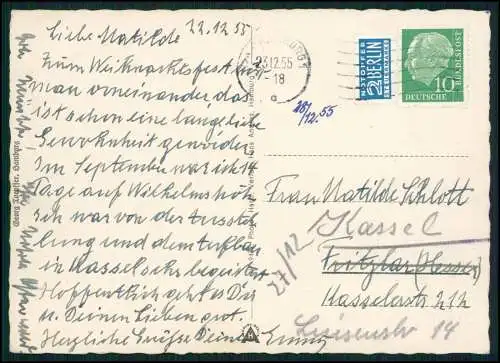 22.12.55
Liebe Matilde
Zum Weihnachtsfest hört
man voneinander, das
ist schon eine langbeliebte
Gewohnheit geworden
Im September war ich 14
Tage auf Wilhelmshöh
ich war von der Ausstel
lung und dem Aufbau
in Kassel sehr begeistert
Hoffentlich geht es Dir
u. Deinen Lieben gut.
Herzliche Grüße Deine
Emmy
23.12.55
-18
NOTOPFER
2 BERLIN
STEUERMARKE
10
DEUTSCHE
BUNDESPOST
28/12.55
Frau Matilde Schlott
Kassel
27/12
Fritzlar (Hessen)
Kasselerstr 212
14